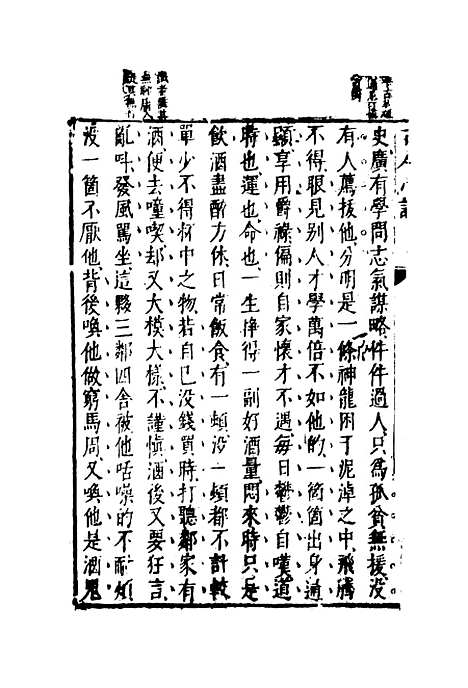 史廣有學問志氣謀略件件過人只爲孤貧無援没
有人薦拔他分明是一條神龍困于泥淖之中飛騰
不得眼見别人才學萬倍不如他的一箇箇出身通
顯享用爵祿偏則自家懷才不遇每日鬱鬱自嘆道
時也運也命也一生掙得一副好酒量悶來時只是
飲酒盡醉方休日常飯食有一頓没一頓都不計較
單少不得杯中之物若自己没錢買時打聽鄰家有
酒便去噇喫却又大模大樣不謹愼酒後又要狂言
亂呌發風罵坐這夥三鄰四舍被他咶噪的不耐煩
没一箇不厭他背後喚他做窮馬周又喚他是酒鬼